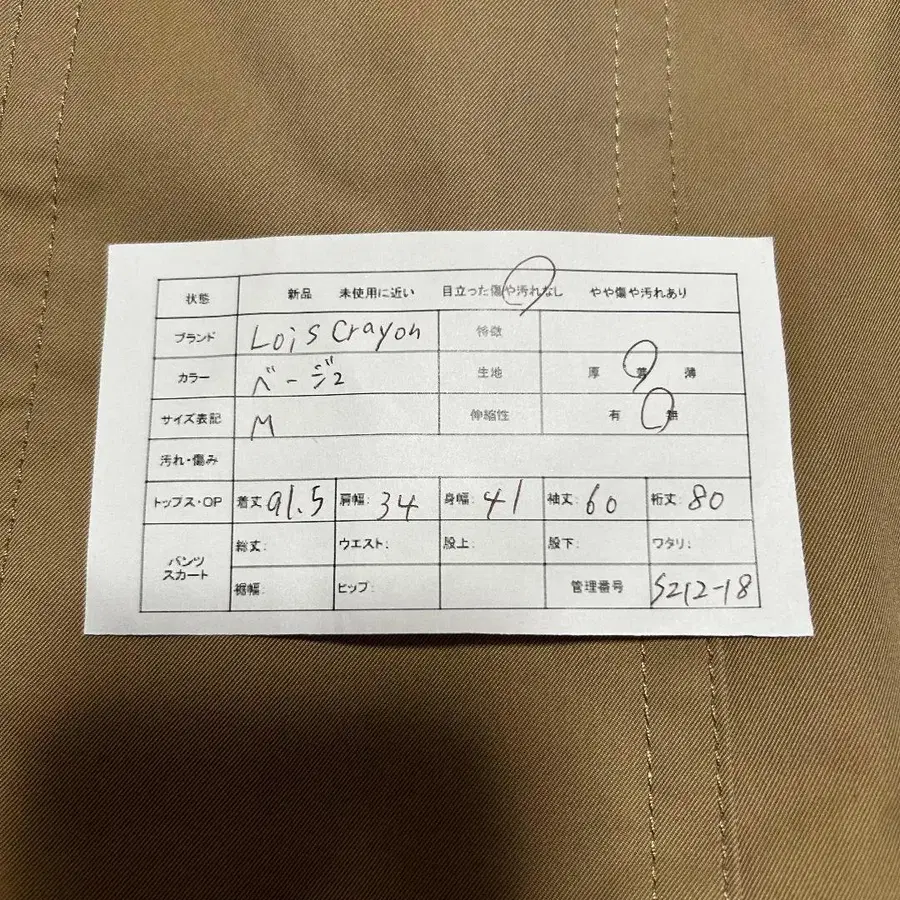 状態 新品 未使用に近い 目立った傷や汚れなし やや傷や汚れあり
ブランド Lois Crayon 特徴
カラー ベージュ 生地 厚 普 薄
サイズ表記 M 伸縮性 有 無
汚れ・傷み
トップス・OP 着丈 91.5 肩幅: 34 身幅: 41 袖丈: 60 裄丈: 80
パンツ スカート 総丈: ウエスト: 股上: 股下: ワタリ:
裾幅: ヒップ: 管理番号 S212-18